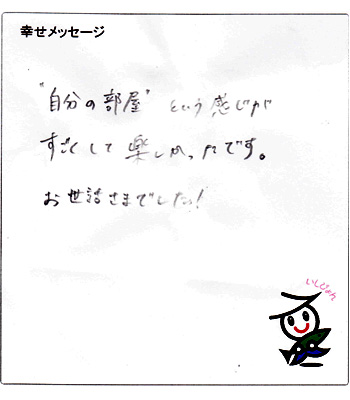 幸せメッセージ
"自分の部屋"という感じが
すごくして楽しかったです。
お世話さまでした!